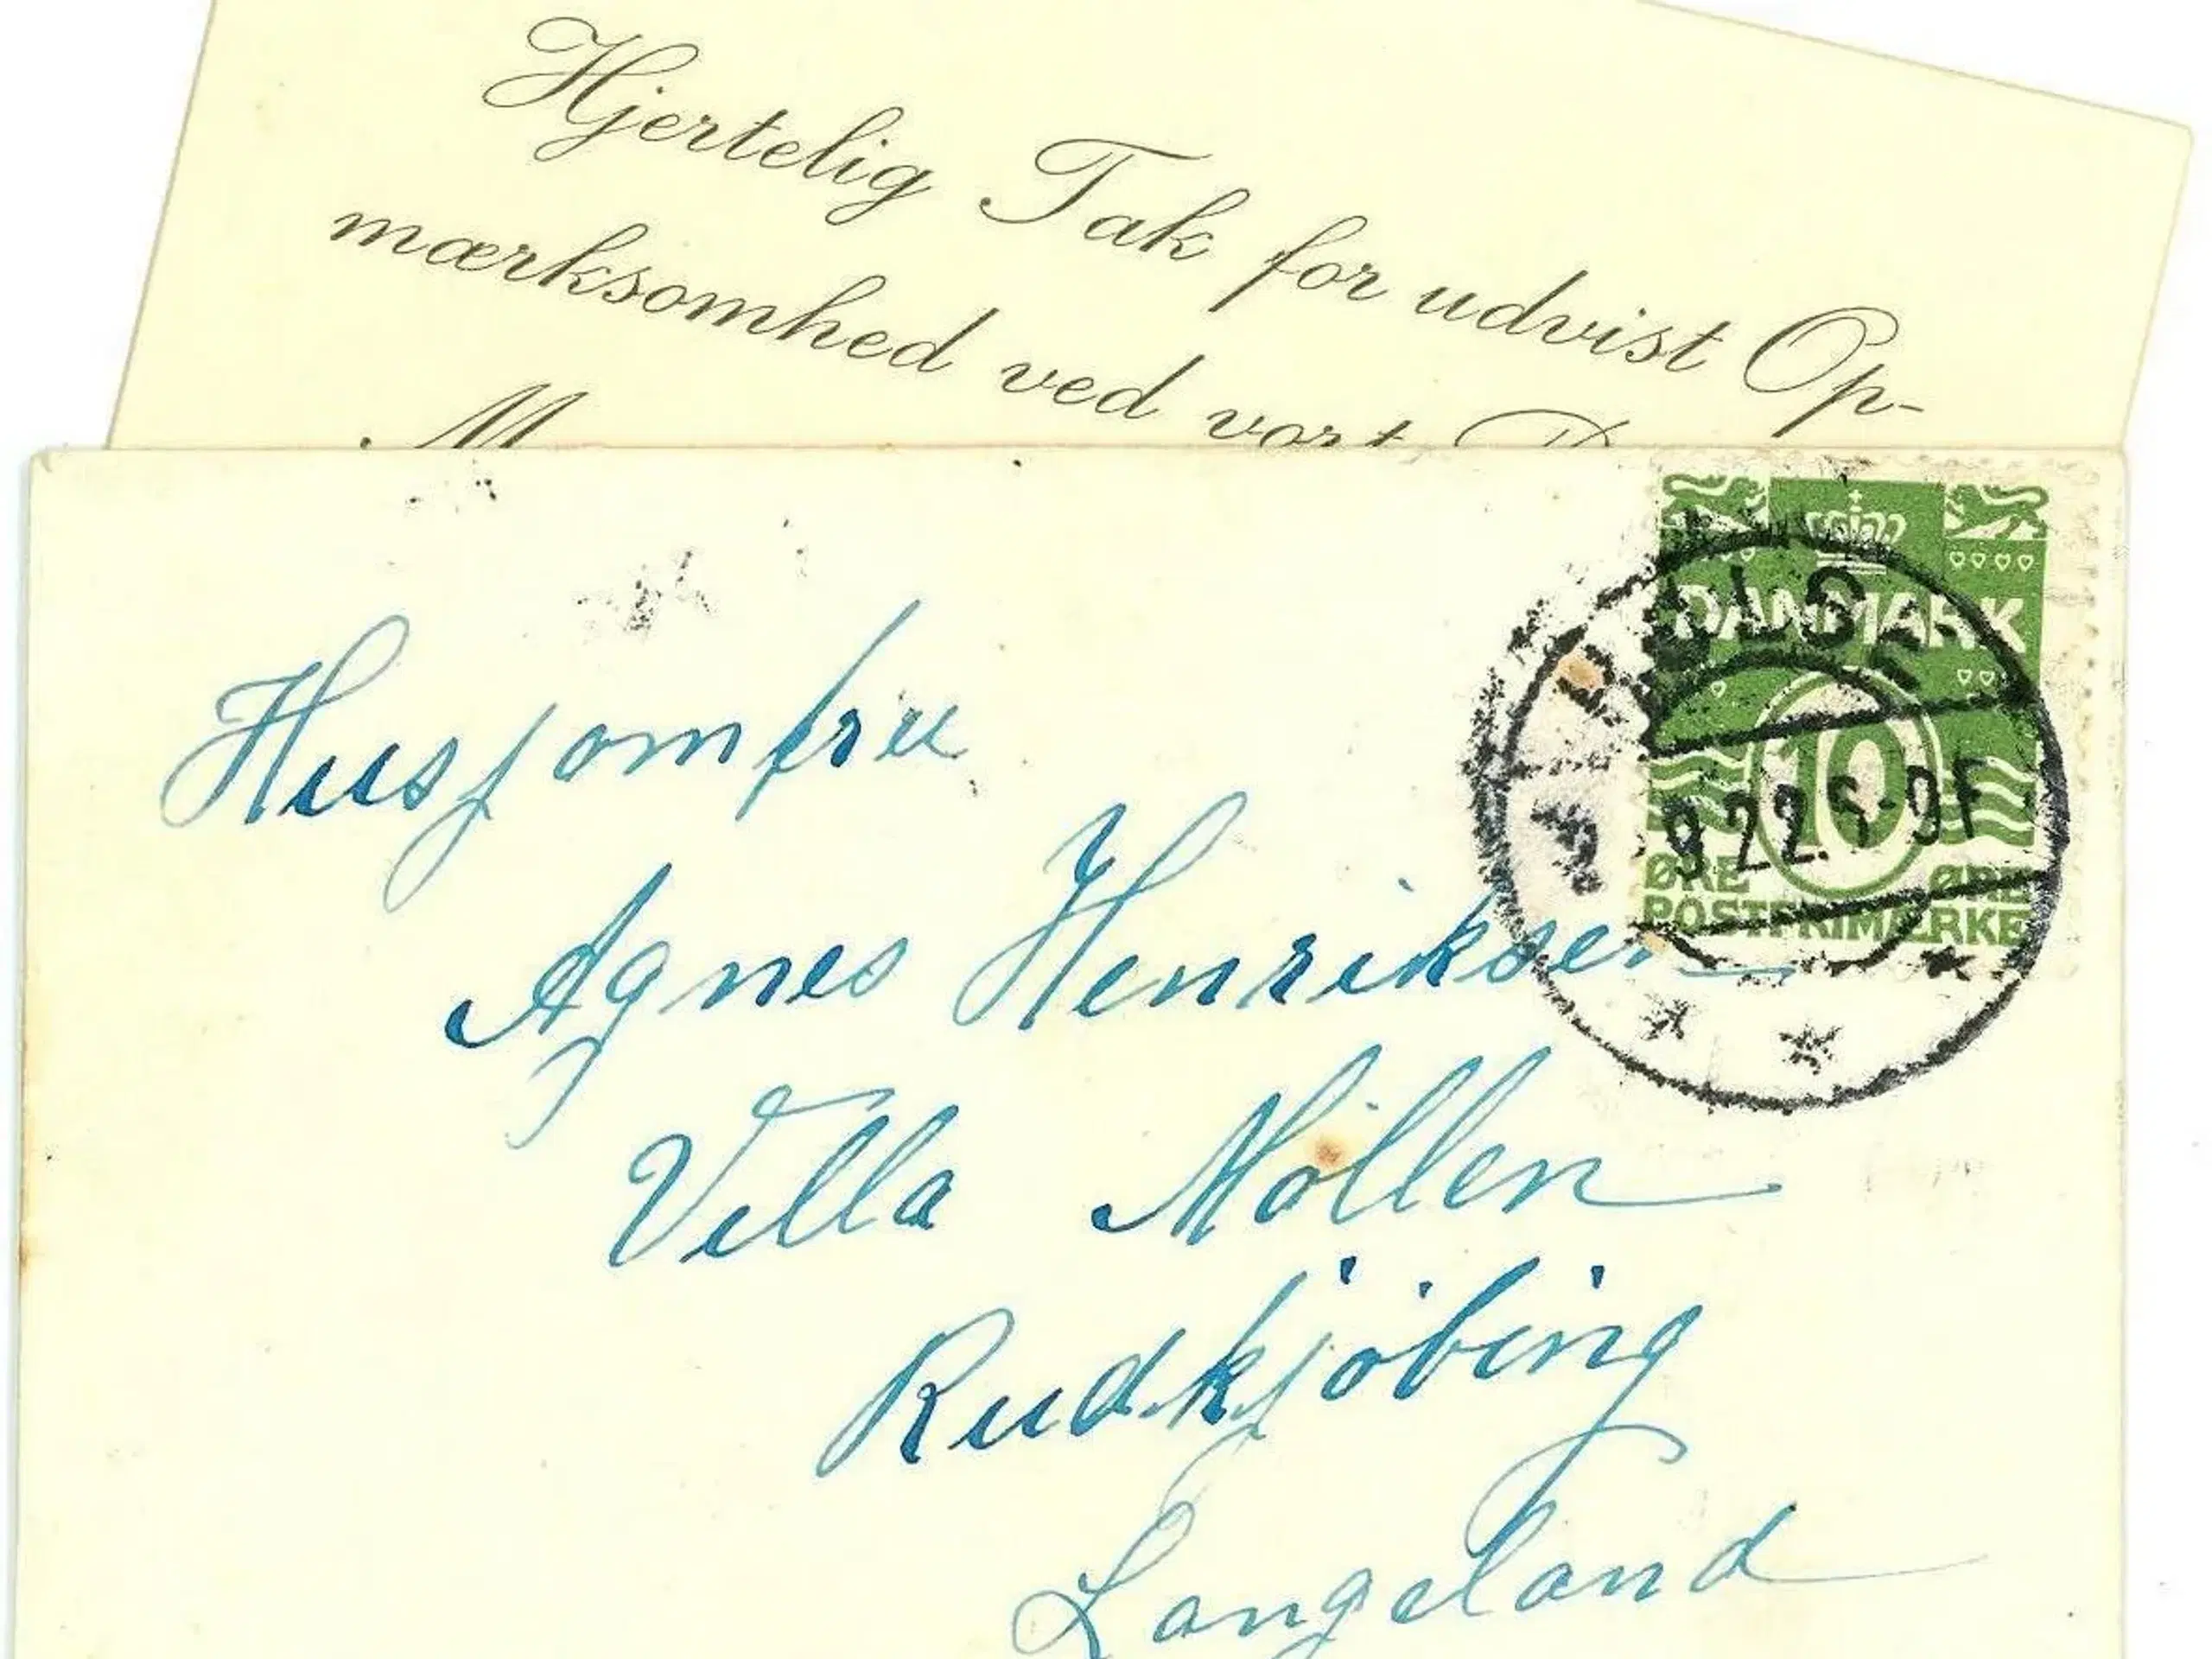 Hjertelig Tak for udvist Op-
mærksomhed ved vort
DANMARK
10
ØRE ØRE
POSTFRIMÆRKE
9 22. 8-9F
Husjomfru
Agnes Henriksen
Villa Möllen
Rudkjöbing
Langeland